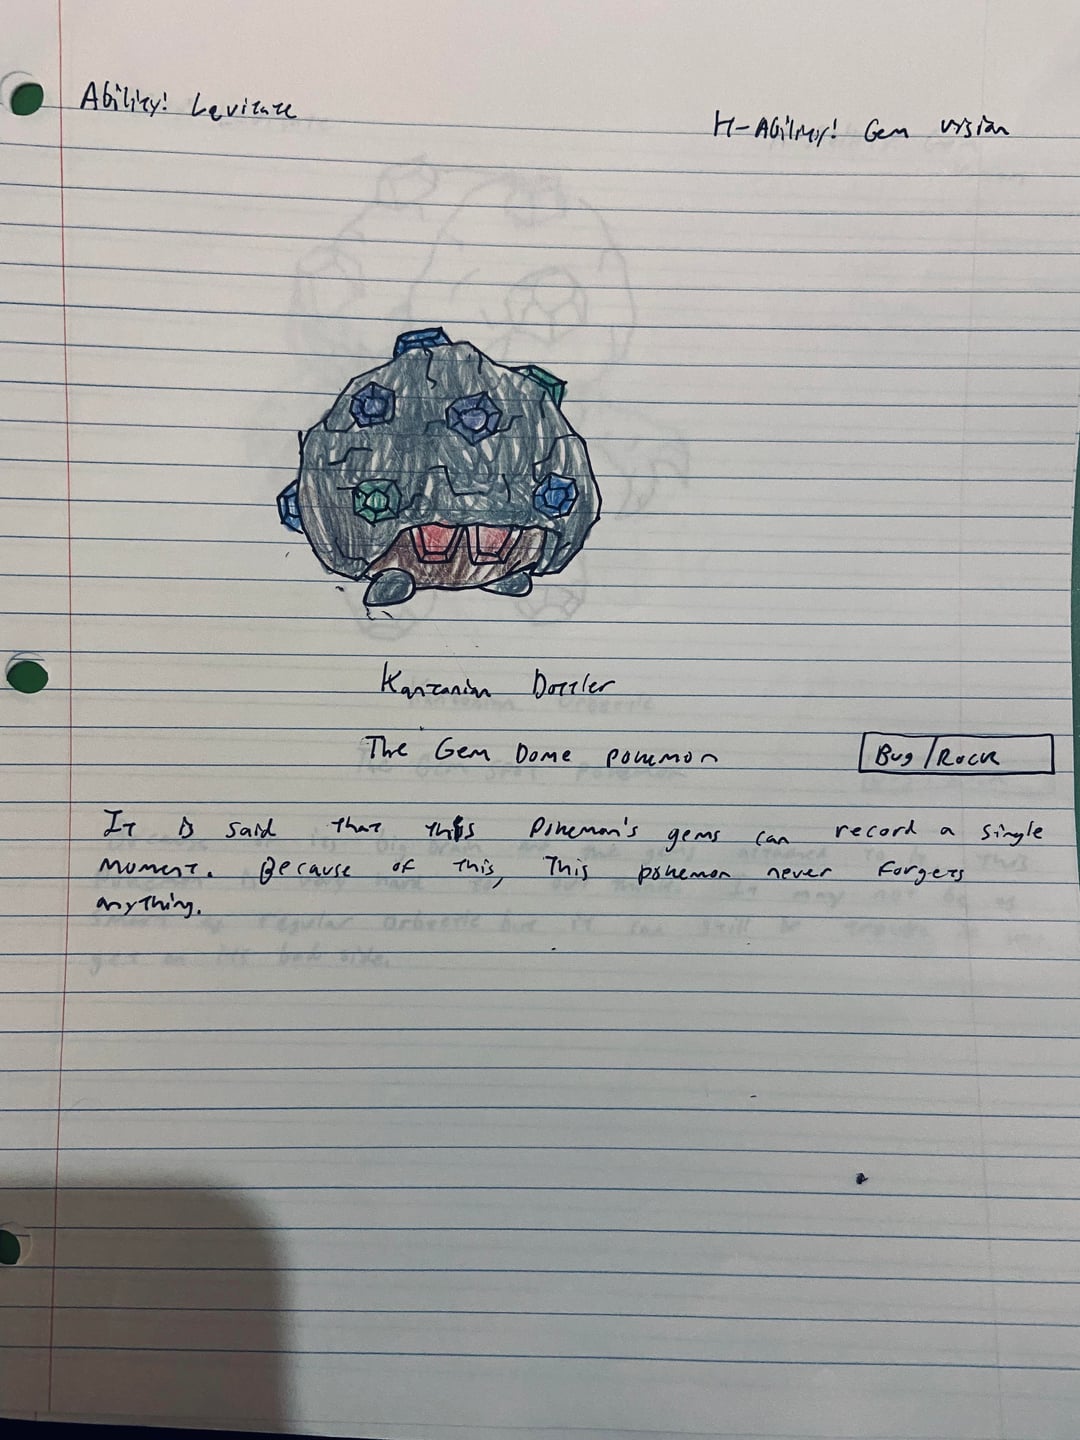 Ability! Levitate
H-Ability! Gem vision
Kantanian Dottler
The Gem Dome pokemon
Bug/Rock
It is said that this Pokemon's gems can record a single
moment. Because of this, This pokemon never forgets
anything.